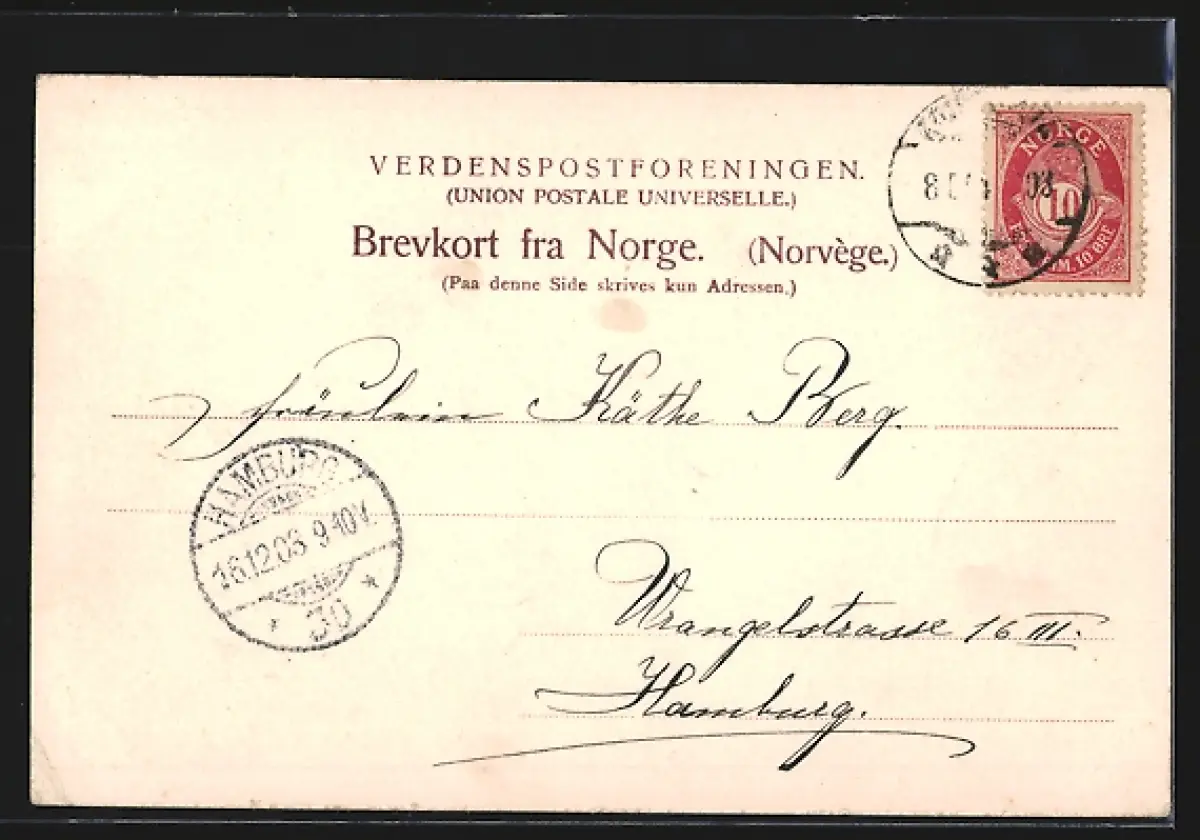 VERDENSPOSTFORENINGEN.
(UNION POSTALE UNIVERSELLE.)
Brevkort fra Norge. (Norvège.)
(Paa denne Side skrives kun Adressen.)
NORGE
10
FRIM. 10 ØRE
03
Fräulein Käthe Berg.
HAMBURG
16.12.03 9-10V
30
Wrangelstrasse 16 III.
Hamburg.